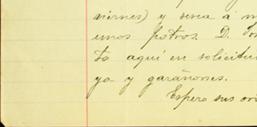 viernes) y seria á
unos potros. D.
to aquí en solicitu
ya y garañones.
Espero sus